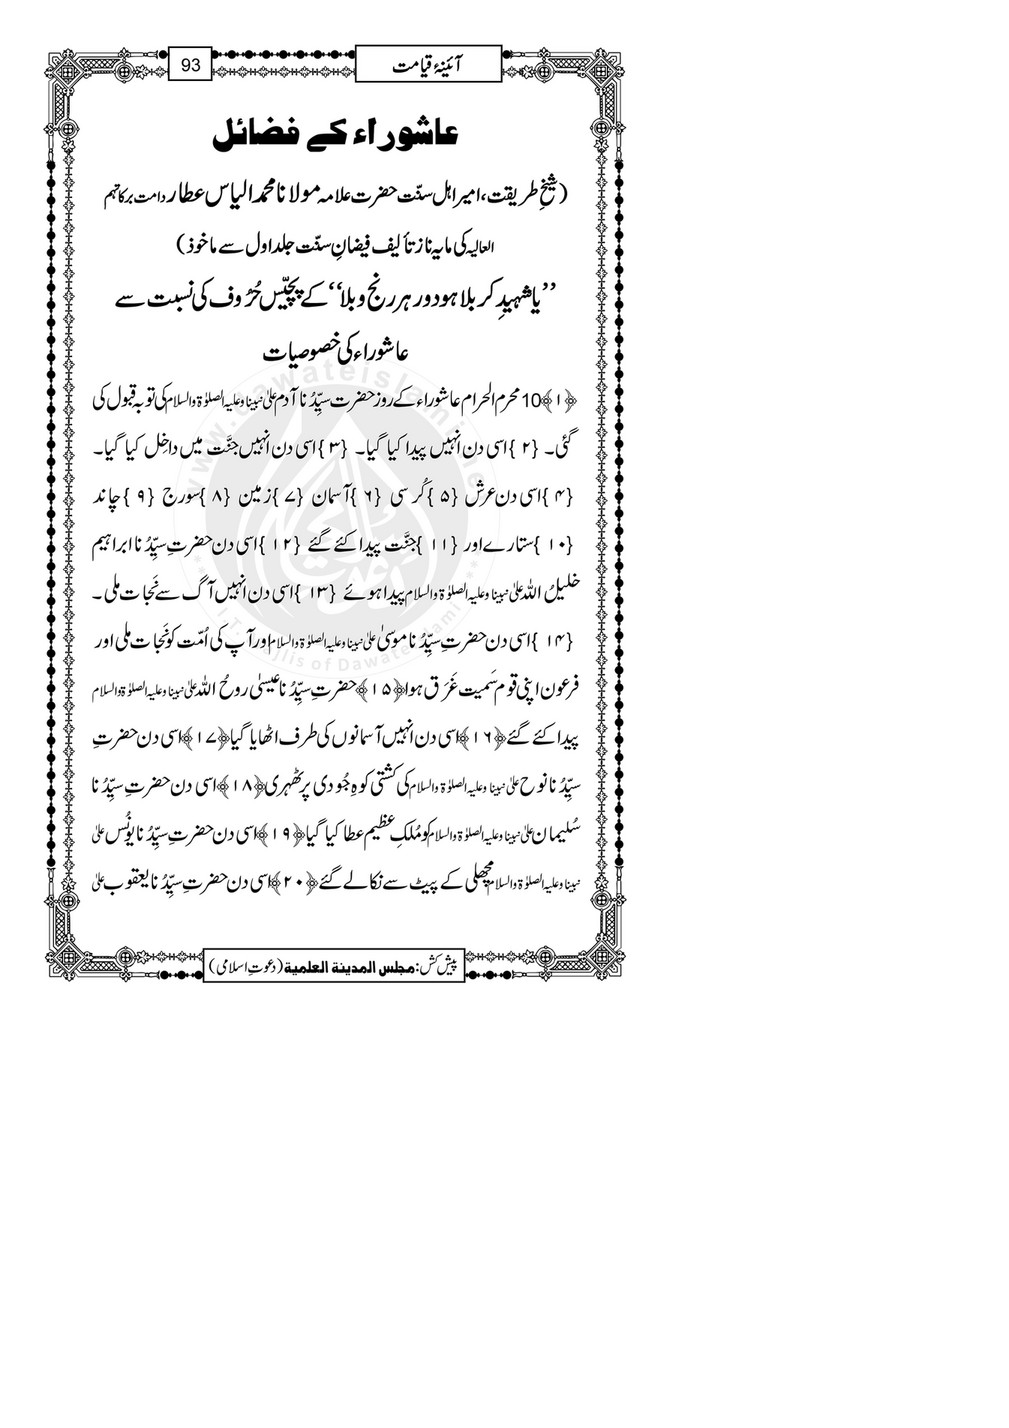 93
آئینۂ قیامت
عاشوراء کے فضائل
(شیخِ طریقت، امیر اہل سنّت حضرت علامہ مولانا محمد الیاس عطار دامت برکاتہم
العالیہ کی مایہ ناز تألیف فیضانِ سنّت جلد اول سے ماخوذ)
’’یا شہیدِ کربلا ہو دور ہر رنج و بلا‘‘ کے پچیّس حُرُوف کی نسبت سے
عاشوراء کی خصوصیات
﴿۱﴾10 محرم الحرام عاشوراء کے روز حضرت سیِّدُنا آدم علیٰ نبینا وعلیہ الصلوٰۃ والسلام کی توبہ قبول کی
گئی۔ {۲} اسی دن انہیں پیدا کیا گیا۔ {۳} اسی دن انہیں جنَّت میں داخِل کیا گیا۔
{۴} اسی دن عرش {۵} کُرسی {۶} آسمان {۷} زمین {۸} سورج {۹} چاند
{۱۰} ستارے اور {۱۱} جنَّت پیدا کئے گئے {۱۲} اسی دن حضرتِ سیِّدُنا ابراہیم
خلیلُ اللہ علیٰ نبینا وعلیہ الصلوٰۃ والسلام پیدا ہوئے {۱۳} اسی دن انہیں آگ سے نَجات ملی۔
{۱۴} اسی دن حضرتِ سیِّدُنا موسیٰ علیٰ نبینا وعلیہ الصلوٰۃ والسلام اور آپ کی اُمّت کو نَجات ملی اور
فرعون اپنی قوم سَمیت غَرَق ہوا ﴿۱۵﴾ حضرتِ سیِّدُنا عیسیٰ روحُ اللہ علیٰ نبینا وعلیہ الصلوٰۃ والسلام
پیدا کئے گئے ﴿۱۶﴾ اسی دن انہیں آسمانوں کی طرف اٹھایا گیا ﴿۱۷﴾ اسی دن حضرتِ
سیِّدُنا نوح علیٰ نبینا وعلیہ الصلوٰۃ والسلام کی کشتی کوہِ جُودی پر ٹھہری ﴿۱۸﴾ اسی دن حضرتِ سیِّدُنا
سُلیمان علیٰ نبینا وعلیہ الصلوٰۃ والسلام کو مُلکِ عظیم عطا کیا گیا ﴿۱۹﴾ اسی دن حضرتِ سیِّدُنا یونُس علیٰ
نبینا وعلیہ الصلوٰۃ والسلام مچھلی کے پیٹ سے نکالے گئے ﴿۲۰﴾ اسی دن حضرتِ سیِّدُنا یعقوب علیٰ
پیش کش: مجلس المدینۃ العلمیۃ (دعوتِ اسلامی)